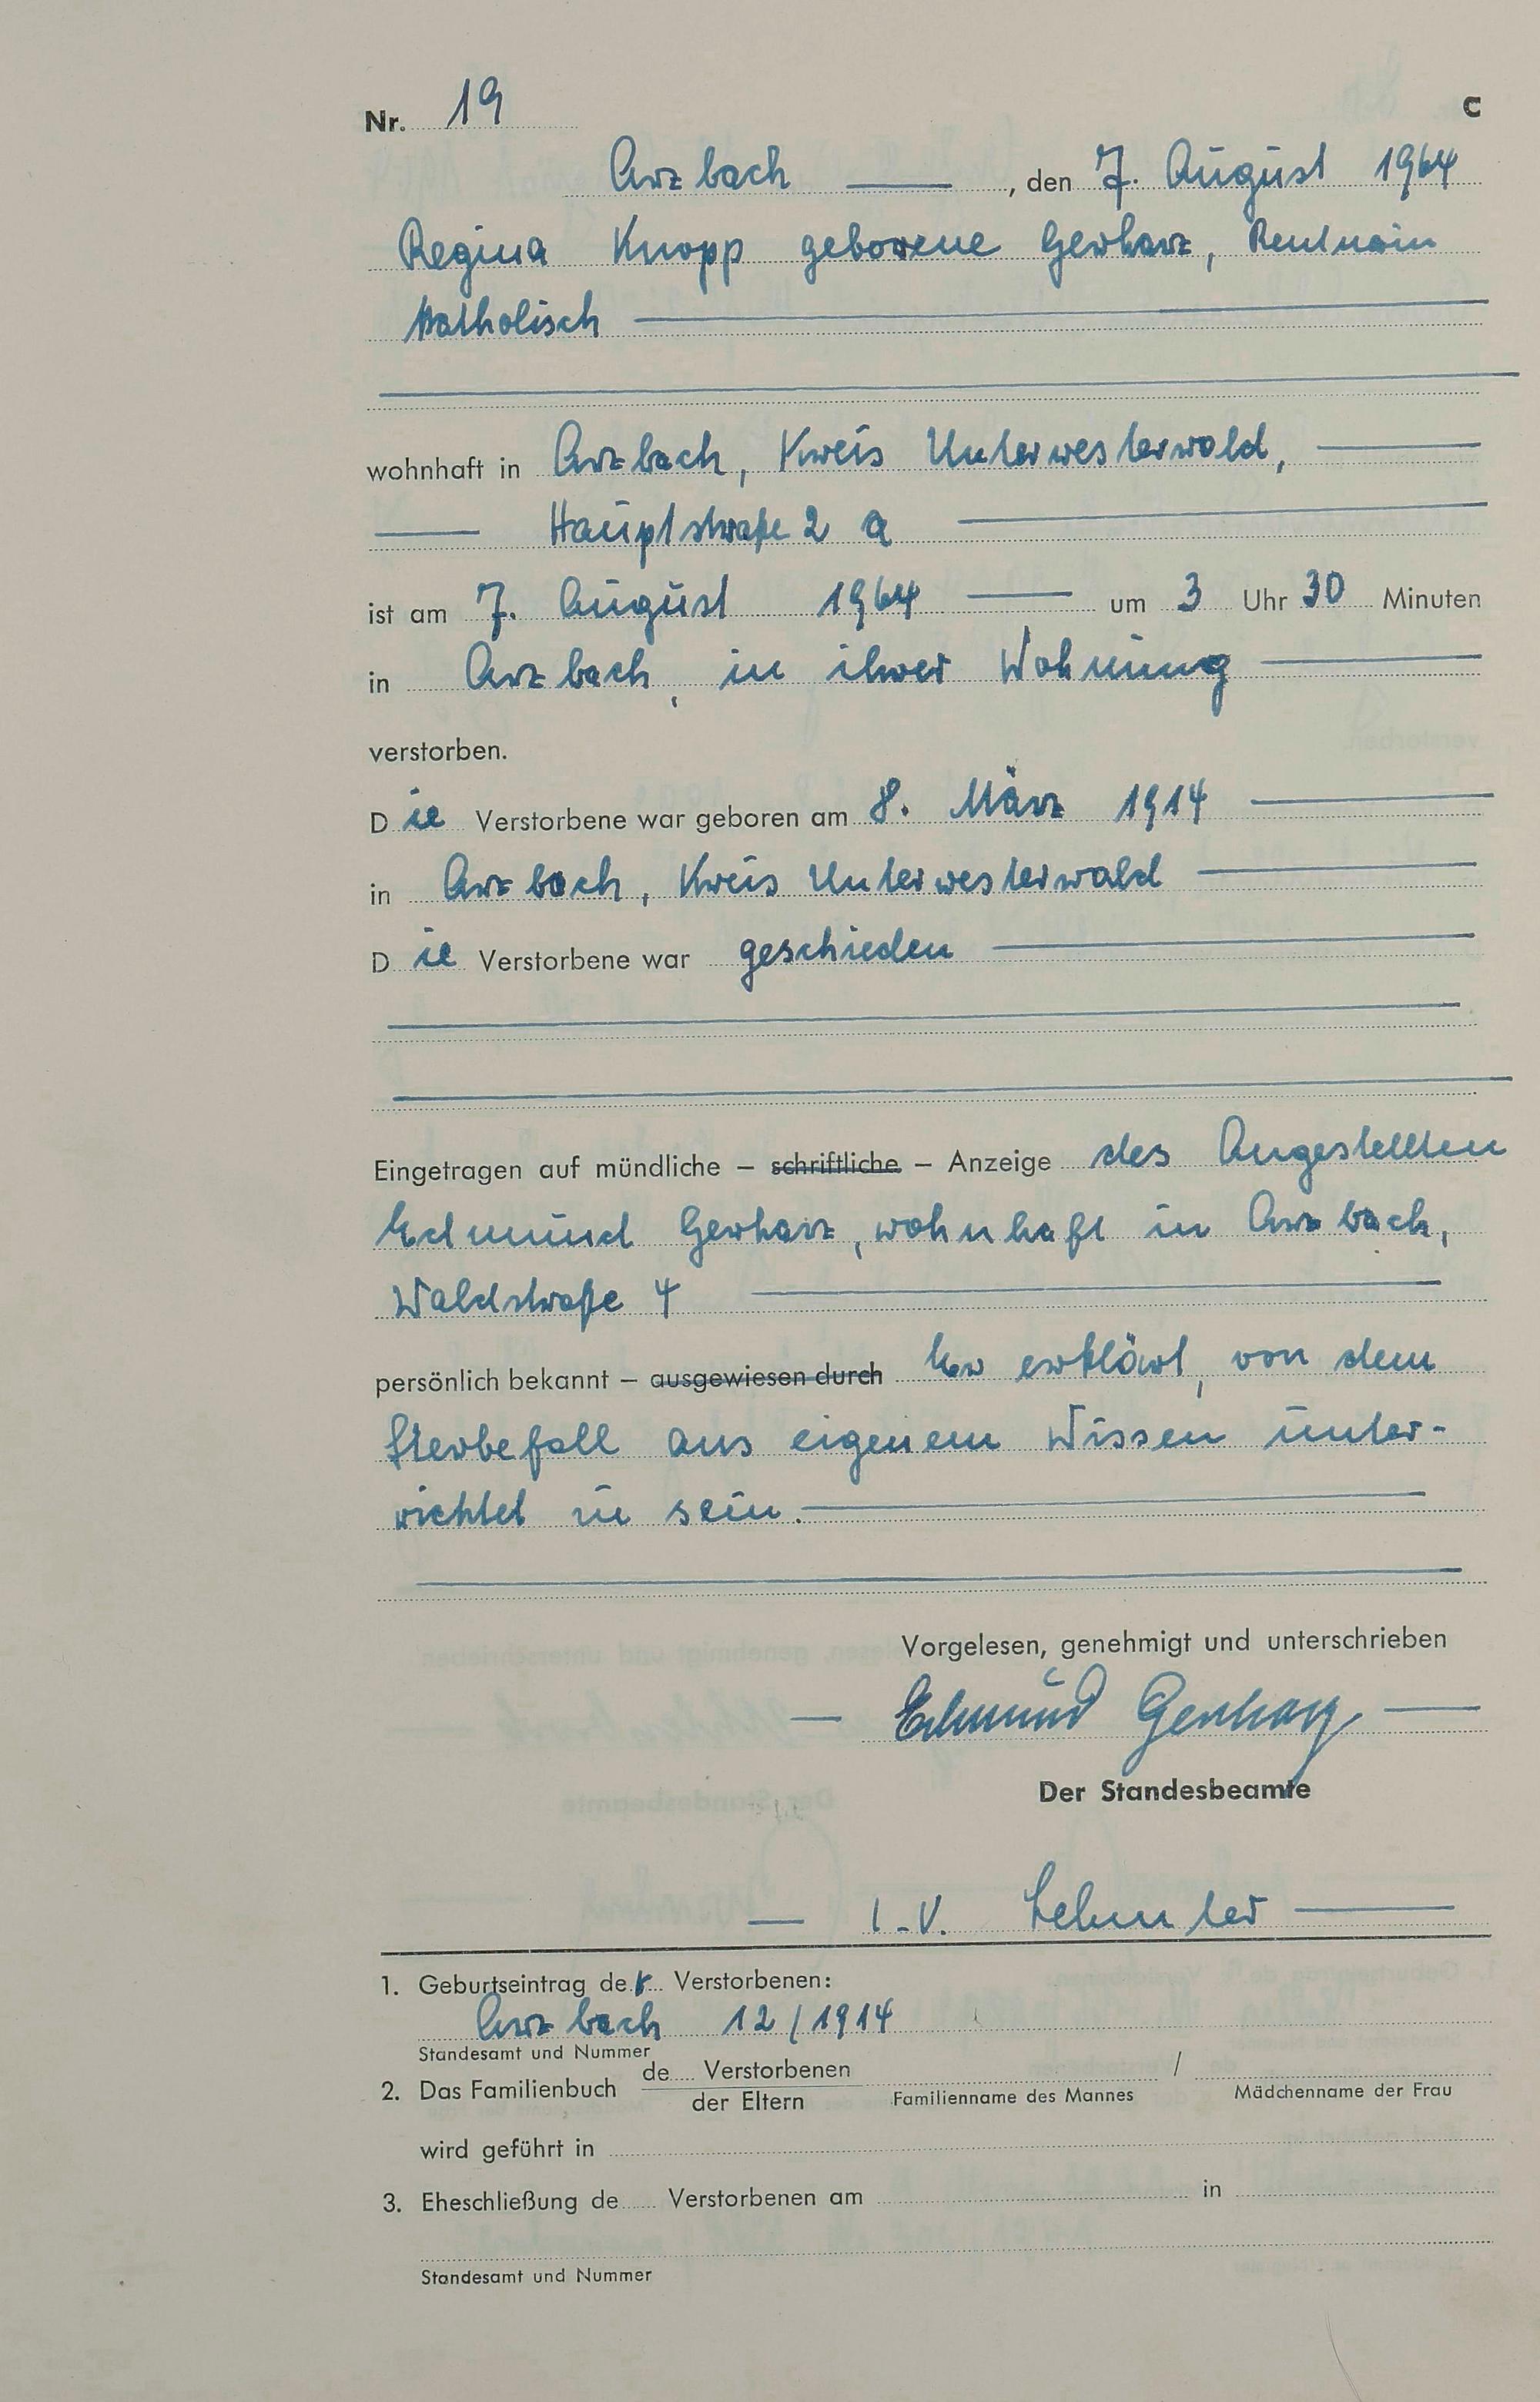 Nr. 19 C
Arzbach , den 7. August 1964
Regina Knopp geborene Gerharz, Rentnerin
katholisch
wohnhaft in Arzbach, Kreis Unterwesterwald,
Hauptstraße 2 a
ist am 7. August 1964 um 3 Uhr 30 Minuten
in Arzbach, in ihrer Wohnung
verstorben.
Die Verstorbene war geboren am 8. März 1914
in Arzbach, Kreis Unterwesterwald
Die Verstorbene war geschieden
Eingetragen auf mündliche – schriftliche – Anzeige des Angestellten
Edmund Gerharz, wohnhaft in Arzbach,
Waldstraße 4
persönlich bekannt – ausgewiesen durch Er erklärt, von dem
Sterbefall aus eigenem Wissen unter-
richtet zu sein.
Vorgelesen, genehmigt und unterschrieben
Edmund Gerharz
Der Standesbeamte
I.V.
1. Geburtseintrag der Verstorbenen:
Arzbach 12/1914
Standesamt und Nummer
2. Das Familienbuch de Verstorbenen / 
der Eltern Familienname des Mannes Mädchenname der Frau
wird geführt in
3. Eheschließung de Verstorbenen am in
Standesamt und Nummer